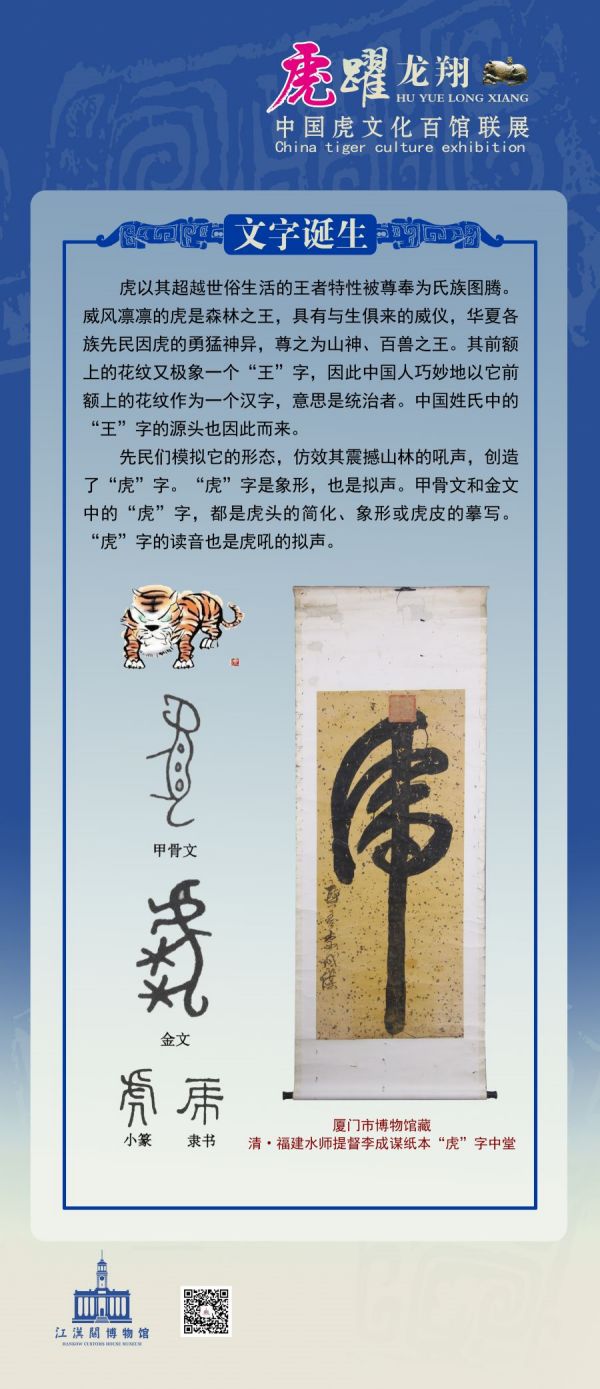 虎躍龙翔
HU YUE LONG XIANG
中国虎文化百馆联展
China tiger culture exhibition
文字诞生
虎以其超越世俗生活的王者特性被尊奉为氏族图腾。
威风凛凛的虎是森林之王，具有与生俱来的威仪，华夏各
族先民因虎的勇猛神异，尊之为山神、百兽之王。其前额
上的花纹又极象一个“王”字，因此中国人巧妙地以它前
额上的花纹作为一个汉字，意思是统治者。中国姓氏中的
“王”字的源头也因此而来。
先民们模拟它的形态，仿效其震撼山林的吼声，创造
了“虎”字。“虎”字是象形，也是拟声。甲骨文和金文
中的“虎”字，都是虎头的简化、象形或虎皮的摹写。
“虎”字的读音也是虎吼的拟声。
王
甲骨文
金文
小篆
隶书
虎
厦门市博物馆藏
清·福建水师提督李成谋纸本“虎”字中堂
江漢關博物馆
HANKOW CUSTOMS HOUSE MUSEUM